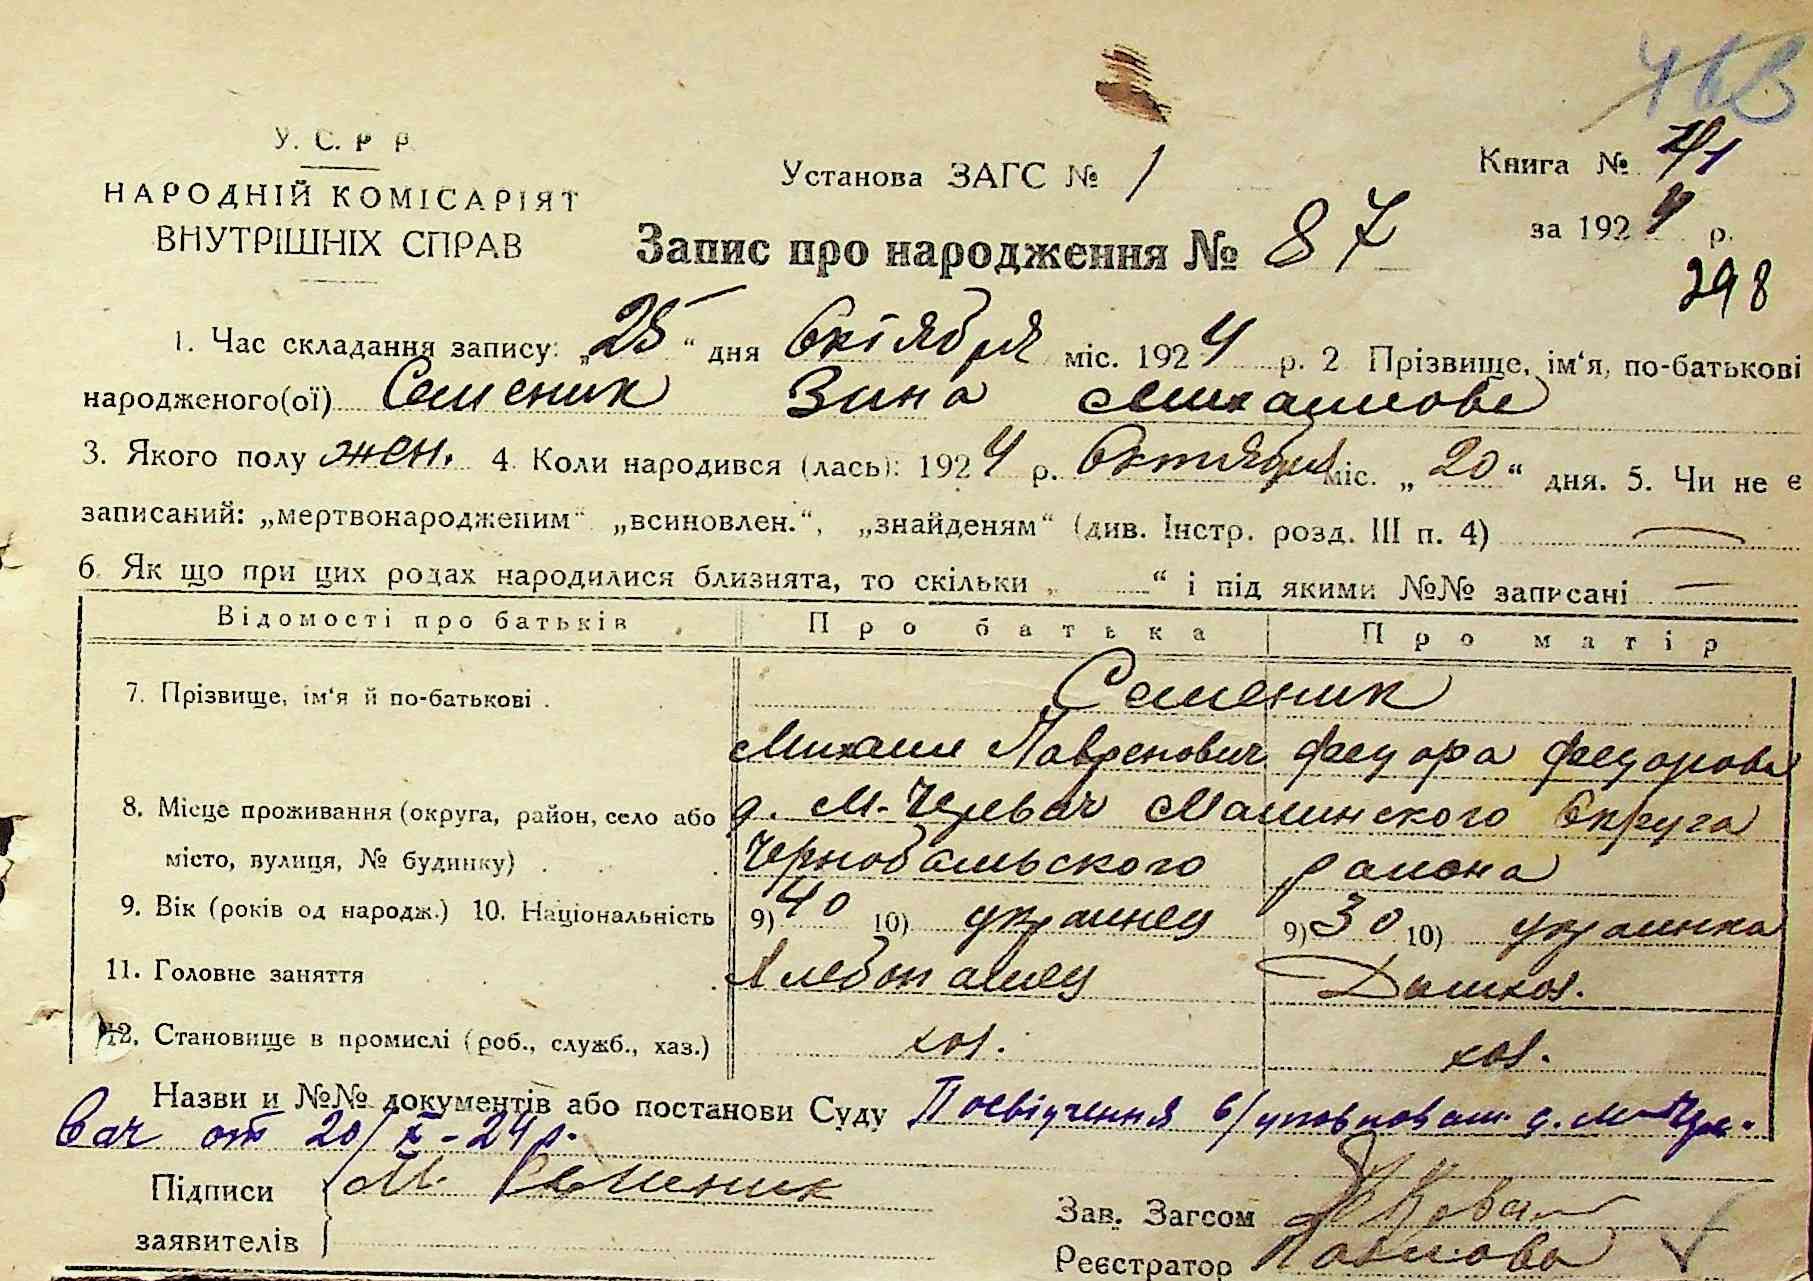 У. С. Р Р.
НАРОДНІЙ КОМІСАРІЯТ
ВНУТРІШНІХ СПРАВ
Установа ЗАГС № 1
Книга №
за 1924 р.
298
Запис про народження № 87
1. Час складання запису: „25“ дня Октября міс. 1924 р. 2 Прізвище, ім‘я, по-батькові
народженого(ої) Семеник Зина Михаилова
3. Якого полу жен. 4. Коли народився (лась): 1924 р. Октября міс. „20“ дня. 5. Чи не є
записаний: „мертвонародженим“ „всиновлен.“, „знайденям“ (див. Інстр. розд. III п. 4)
6. Як що при цих родах народилися близнята, то скільки „ “ і під якими №№ записані
Відомості про батьків Про батька Про матір
7. Прізвище, ім‘я й по-батькові . Семеник
Михаил Лавренович Федора Федорова
8. Місце проживання (округа, район, село або д. М. Малинского Округа
місто, вулиця, № будинку) . . Чернобыльского района
9. Вік (років од народж.) 10. Національність 9) 40 10) украинец 9) 30 10) украинка
11. Головне заняття Хлебопашец Домхоз.
12. Становище в промислі (роб., служб., хаз.) хоз. хоз.
Назви и №№ документів або постанови Суду Посвідчення д. М
вач от 20/X-24 р.
Підписи М. Семеник
заявителів
Зав. Загсом
Реєстратор Павлова